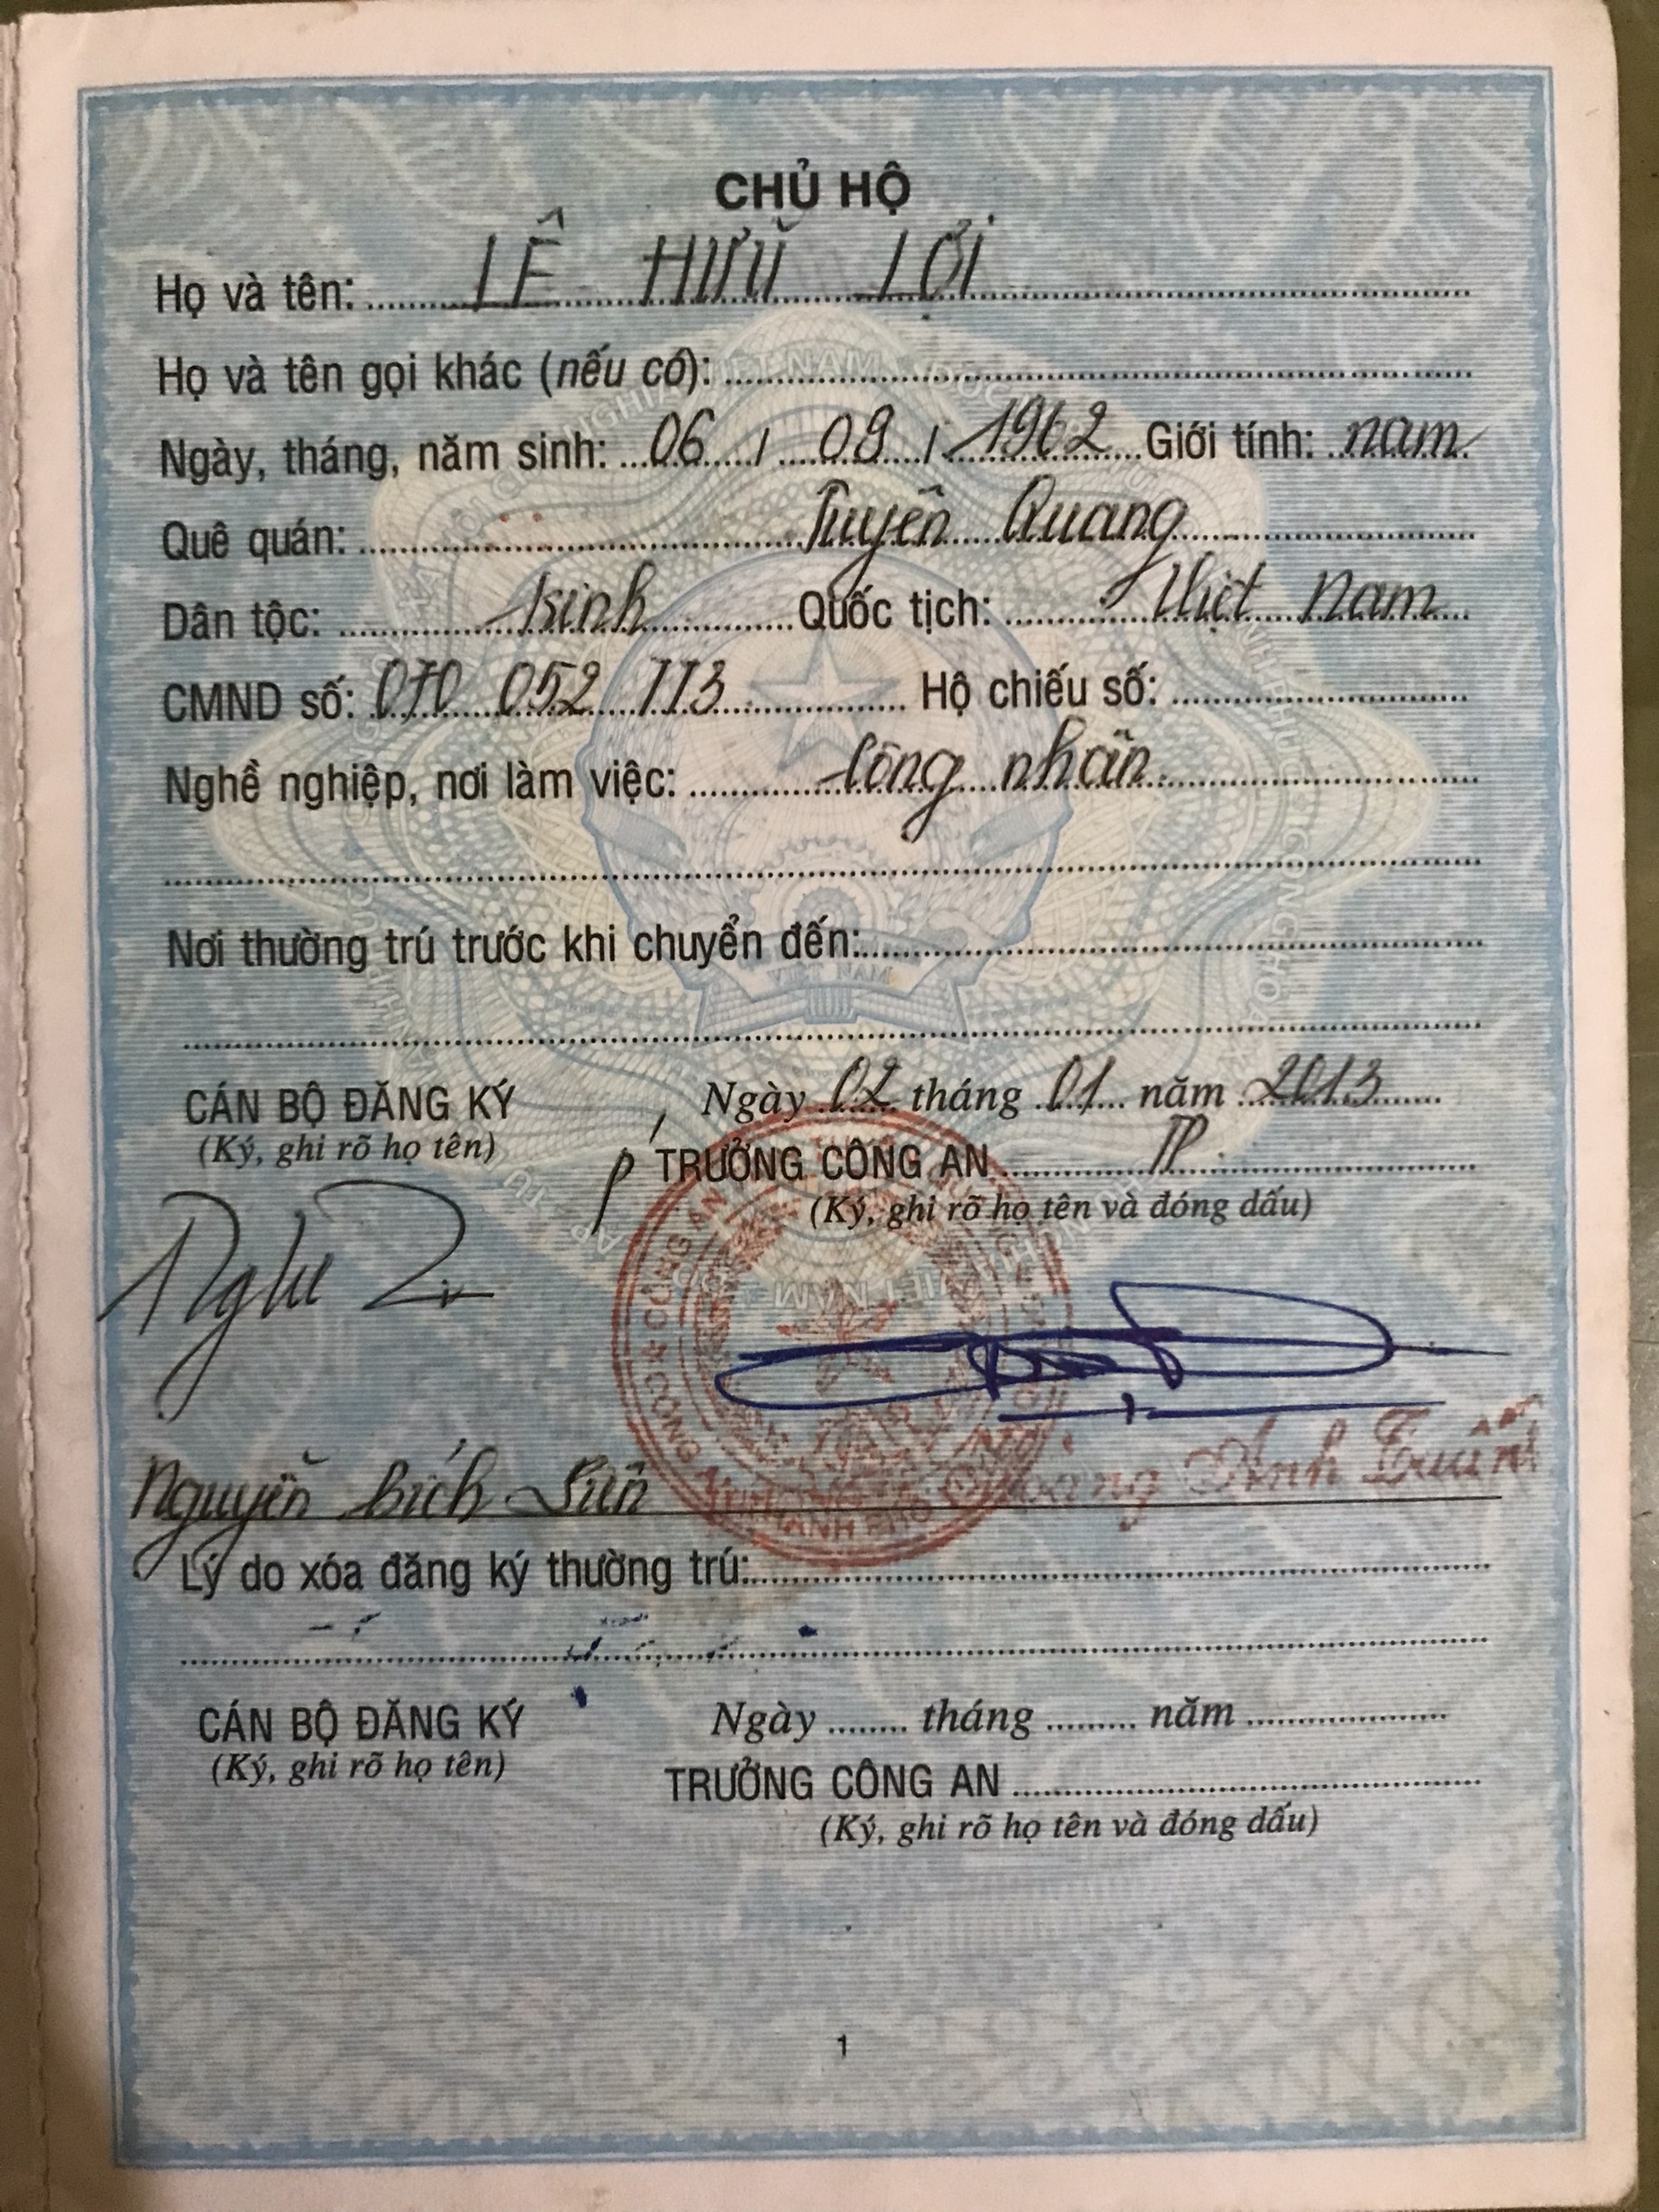 CHỦ HỘ
Họ và tên: LÊ HỮU LỢI
Họ và tên gọi khác (nếu có):
Ngày, tháng, năm sinh: 06 / 09 / 1962 Giới tính: nam
Quê quán: Tuyên Quang
Dân tộc: Kinh Quốc tịch: Việt Nam
CMND số: 070 052 113 Hộ chiếu số:
Nghề nghiệp, nơi làm việc: Công nhân
Nơi thường trú trước khi chuyển đến:
CÁN BỘ ĐĂNG KÝ Ngày 02 tháng 01 năm 2013
(Ký, ghi rõ họ tên) P TRƯỞNG CÔNG AN TP
(Ký, ghi rõ họ tên và đóng dấu)
Nguyễn Bích
Lý do xóa đăng ký thường trú:
CÁN BỘ ĐĂNG KÝ Ngày tháng năm
(Ký, ghi rõ họ tên) TRƯỞNG CÔNG AN
(Ký, ghi rõ họ tên và đóng dấu)
1